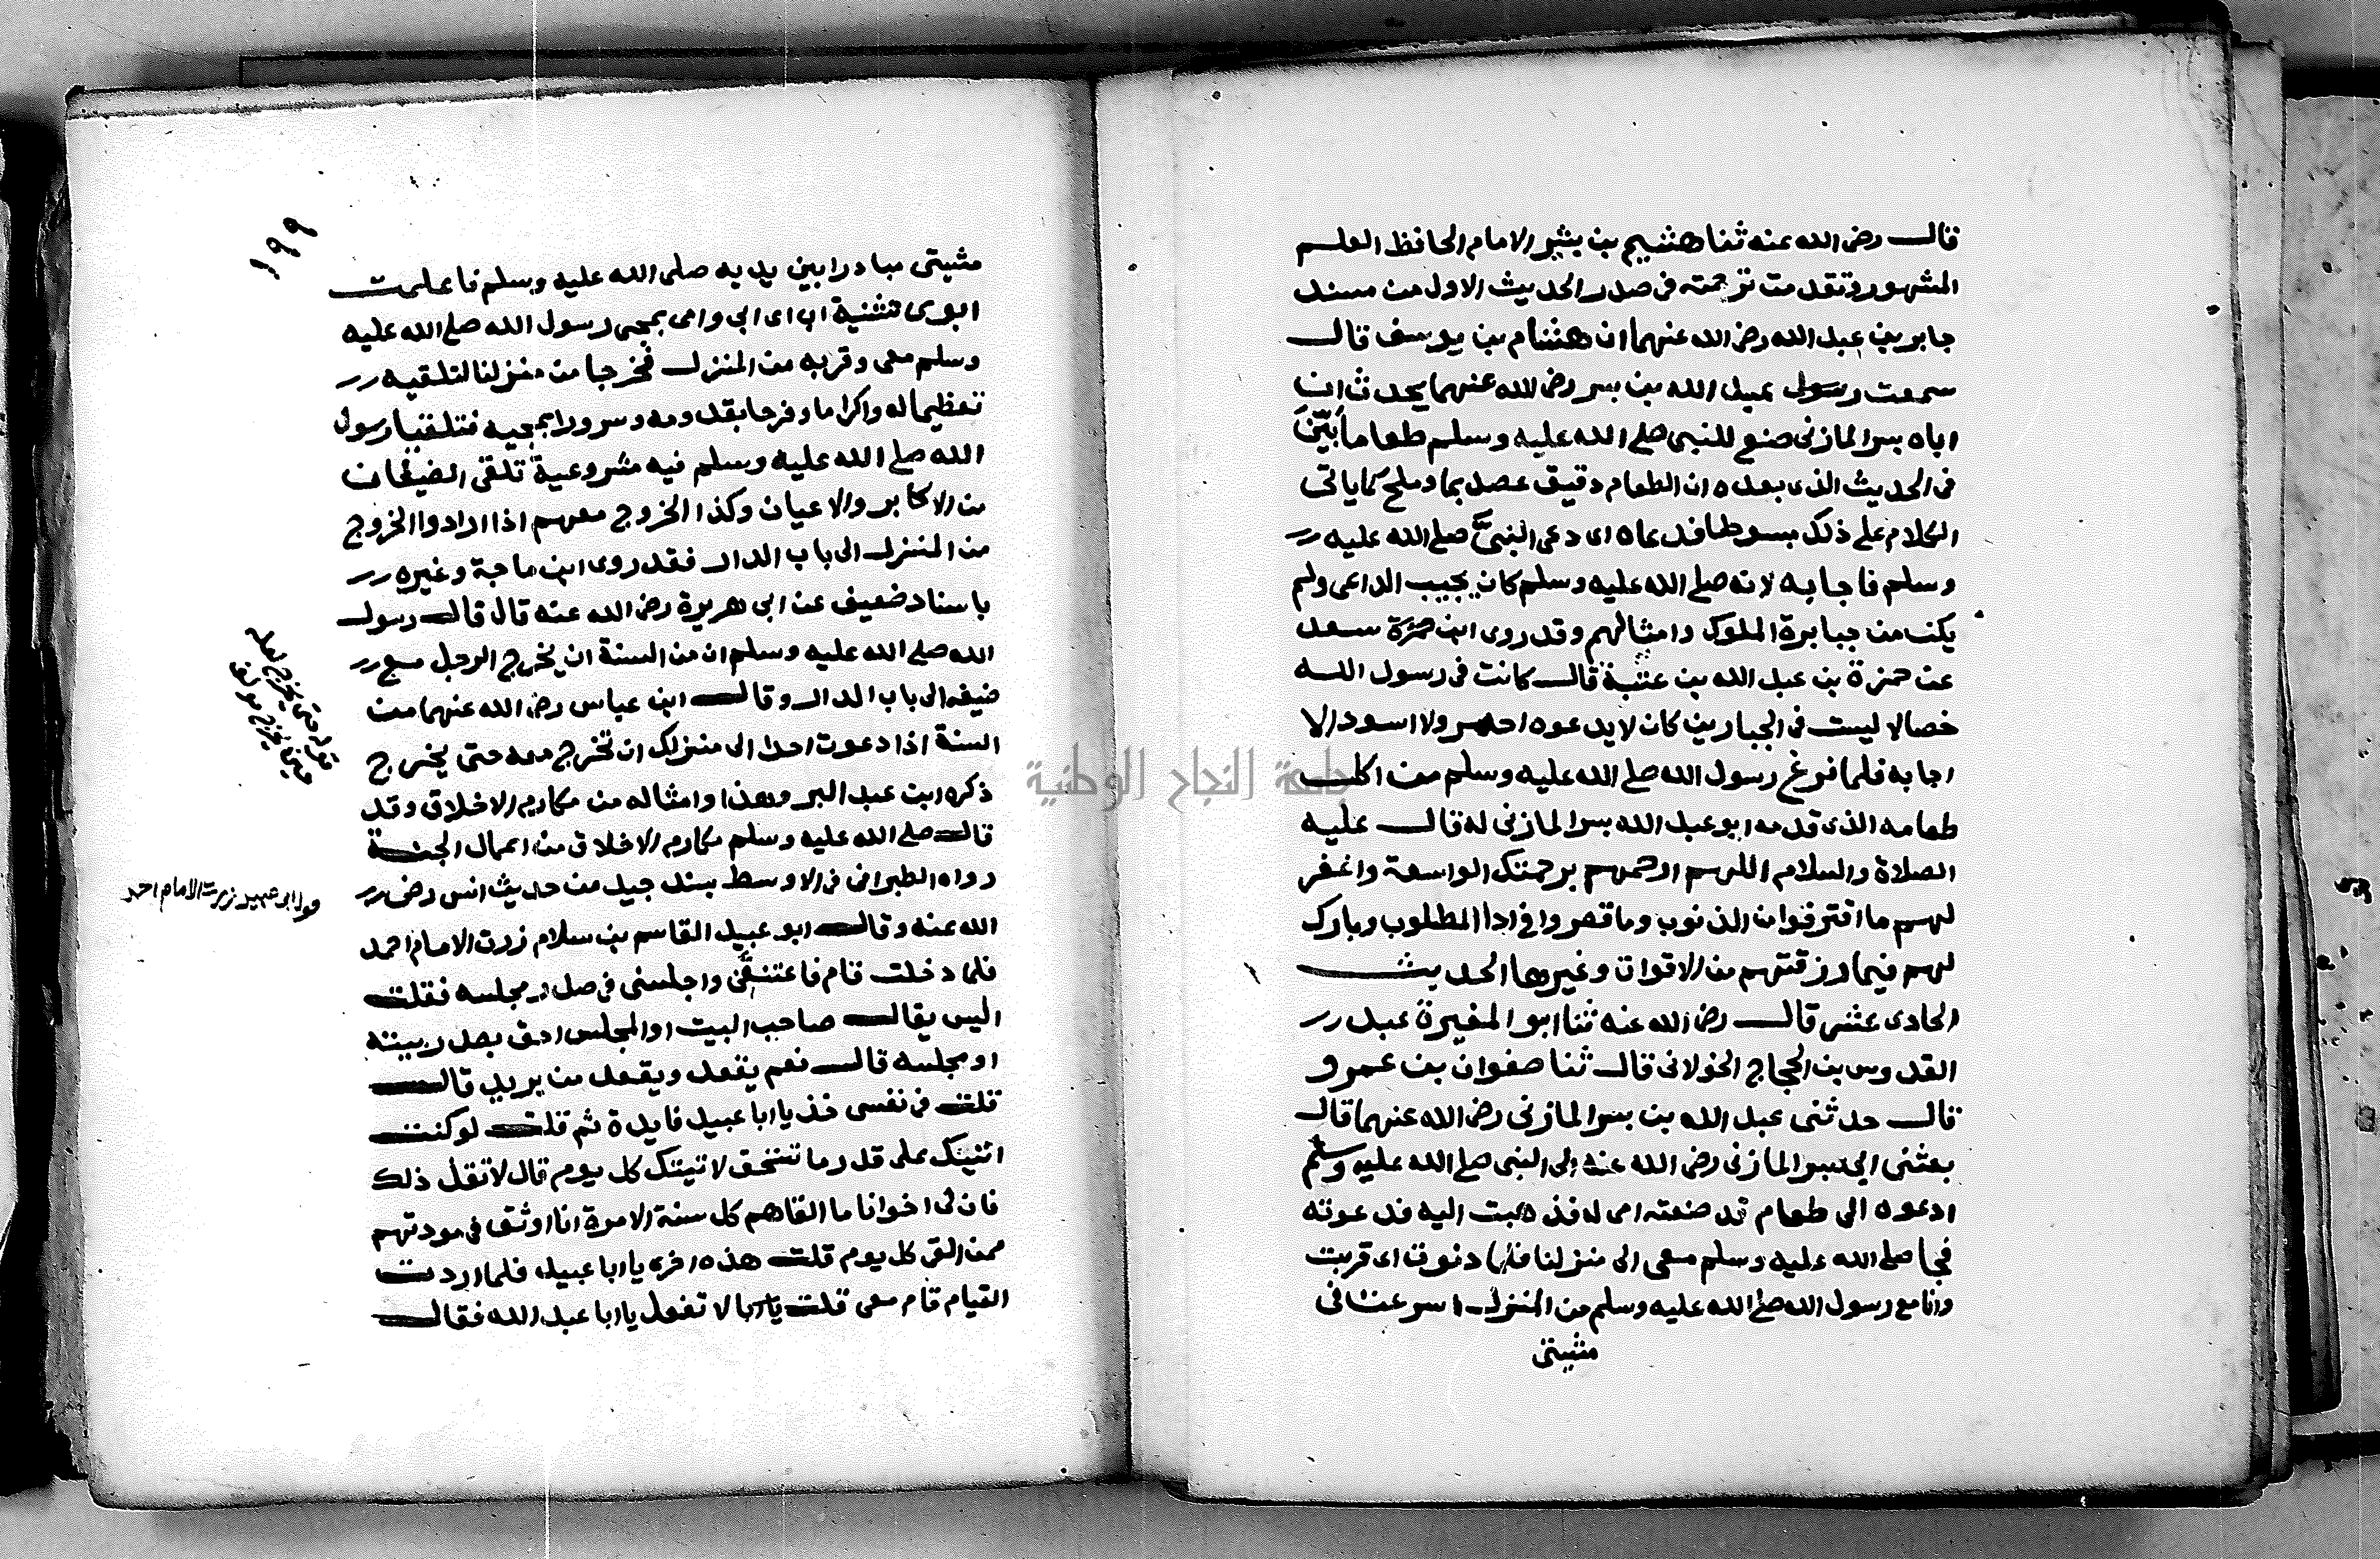 قال رضى الله عنه ثنا هشيم بن بشير الامام الحافظ العلم
المشهور وتقدمت ترجمته فى صدر الحديث الاول من مسند
جابر بن عبد الله رضى الله عنهما ان هشام بن يوسف قال
سمعت رسول عبد الله بن بسر رضى الله عنهما يحدث ان
اباه بسر المازنى صنع للنبى صلى الله عليه وسلم طعاما بين
فى الحديث الذى بعده ان الطعام دقيق عصد بما وملح كما ياتى
الكلام على ذلك مبسوطا فدعاه اى دعى النبى صلى الله عليه
وسلم فاجابه لانه صلى الله عليه وسلم كان يجيب الداعى ولم
يكن من جبابرة الملوك وامثالهم وقد روى ابن سعد
عن حمزة بن عبد الله بن عتبة قال كانت فى رسول الله
خصالا ليست فى الجبارين كان لا يدعوه احمر ولا اسود الا
اجابه فلما فرغ رسول الله صلى الله عليه وسلم من اكل
طعامه الذى قدمه ابو عبد الله بسر المازنى له قال عليه
الصلاة والسلام اللهم ارحمهم برحمتك الواسعة واغفر
لهم ما اقترفوا من الذنوب وما قصروا فى ادا المطلوب وبارك
لهم فيما رزقتهم من الاقوات وغيرها الحديث
الحادى عشر قال رضى الله عنه ثنا ابو المغيرة عبد
القدوس بن الحجاج الخولانى قال ثنا صفوان بن عمرو
قال حدثنى عبد الله بن بسر المازنى رضى الله عنهما قال
بعثنى ابى بسر المازنى رضى الله عنه الى النبى صلى الله عليه وسلم
ادعوه الى طعام قد صنعته امى له فذهبت اليه فدعوته
فجا صلى الله عليه وسلم معى الى منزلنا فلما دنوت اى قربت
وانا مع رسول الله صلى الله عليه وسلم من المنزل اسرعت فى
مشيتى
١٩٩
مشيتى مبادرا بين يديه صلى الله عليه وسلم فاعلمت
ابوى تثنية اب اى ابى وامى بمجى رسول الله صلى الله عليه
وسلم معى وقربه من المنزل فخرجا من منزلنا لتلقيه
تعظيما له واكراما وفرحا بقدومه وسرورا بمجيه فتلقيا رسول
الله صلى الله عليه وسلم فيه مشروعية تلقى الضيفان
من الاكابر والاعيان وكذا الخروج معهم اذا ارادوا الخروج
من المنزل الى باب الدار فقد روى ابن ماجة وغيره
باسناد ضعيف عن ابى هريرة رضى الله عنه قال قال رسول
الله صلى الله عليه وسلم ان من السنة ان يخرج الرجل مع
ضيفه الى باب الدار وقال ابن عباس رضى الله عنهما من
السنة اذا دعوت احدا الى منزلك ان تخرج معه حتى يخرج
ذكره ابن عبد البر وهذا وامثاله من مكارم الاخلاق وقد
قال صلى الله عليه وسلم مكارم الاخلاق من اعمال الجنة
رواه الطبرانى فى الاوسط بسند جيد من حديث انس رضى
الله عنه وقال ابو عبيد القاسم بن سلام زرت الامام احمد
فلما دخلت قام فاعتنقنى واجلسنى فى صدر مجلسه فقلت
اليس يقال صاحب البيت او المجلس احق بصدر بيته
او مجلسه قال نعم يقعد ويقعد من يريد قال
قلت فى نفسى خذ يا ابا عبيد فايدة ثم قلت لو كنت
اتيتك على قدر ما تستحق لاتيتك كل يوم قال لا تقل ذلك
فان لى اخوانا ما القاهم كل سنة الا مرة انا اوثق فى مودتهم
ممن القى كل يوم قلت هذه اخرى يا ابا عبيد فلما اردت
القيام قام معى قلت لا تفعل يا ابا عبد الله فقال
قوله حتى يخرج لعله
حين يخرج
قوله ابو عبيد زرت الامام احمد
جامعة النجاح الوطنية